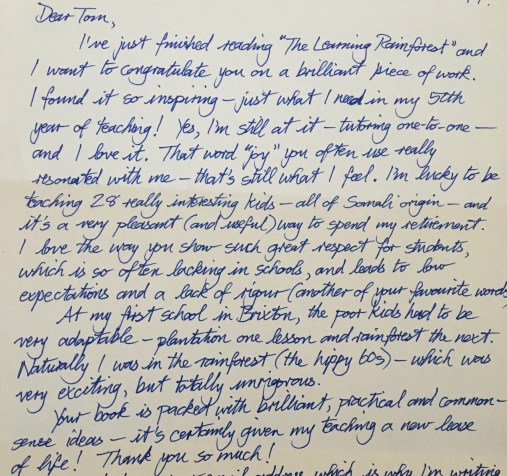 Dear Tom,
I've just finished reading "The Learning Rainforest" and
I want to congratulate you on a brilliant piece of work.
I found it so inspiring – just what I need in my 50th
year of teaching! Yes, I'm still at it – tutoring one-to-one –
and I love it. That word "joy" you often use really
resonated with me – that's still what I feel. I'm lucky to be
teaching 28 really interesting kids – all of Somali origin – and
it's a very pleasant (and useful) way to spend my retirement.
I love the way you show such great respect for students,
which is so often lacking in schools, and leads to low
expectations and a lack of rigour (another of your favourite words
At my first school in Brixton, the poor kids had to be
very adaptable – plantation one lesson and rainforest the next.
Naturally I was in the rainforest (the hippy 60s) – which was
very exciting, but totally unrigorous.
Your book is packed with brilliant, practical and common-
sense ideas – it's certainly given my teaching a new lease
of life! Thank you so much!
address, which is why I'm writing